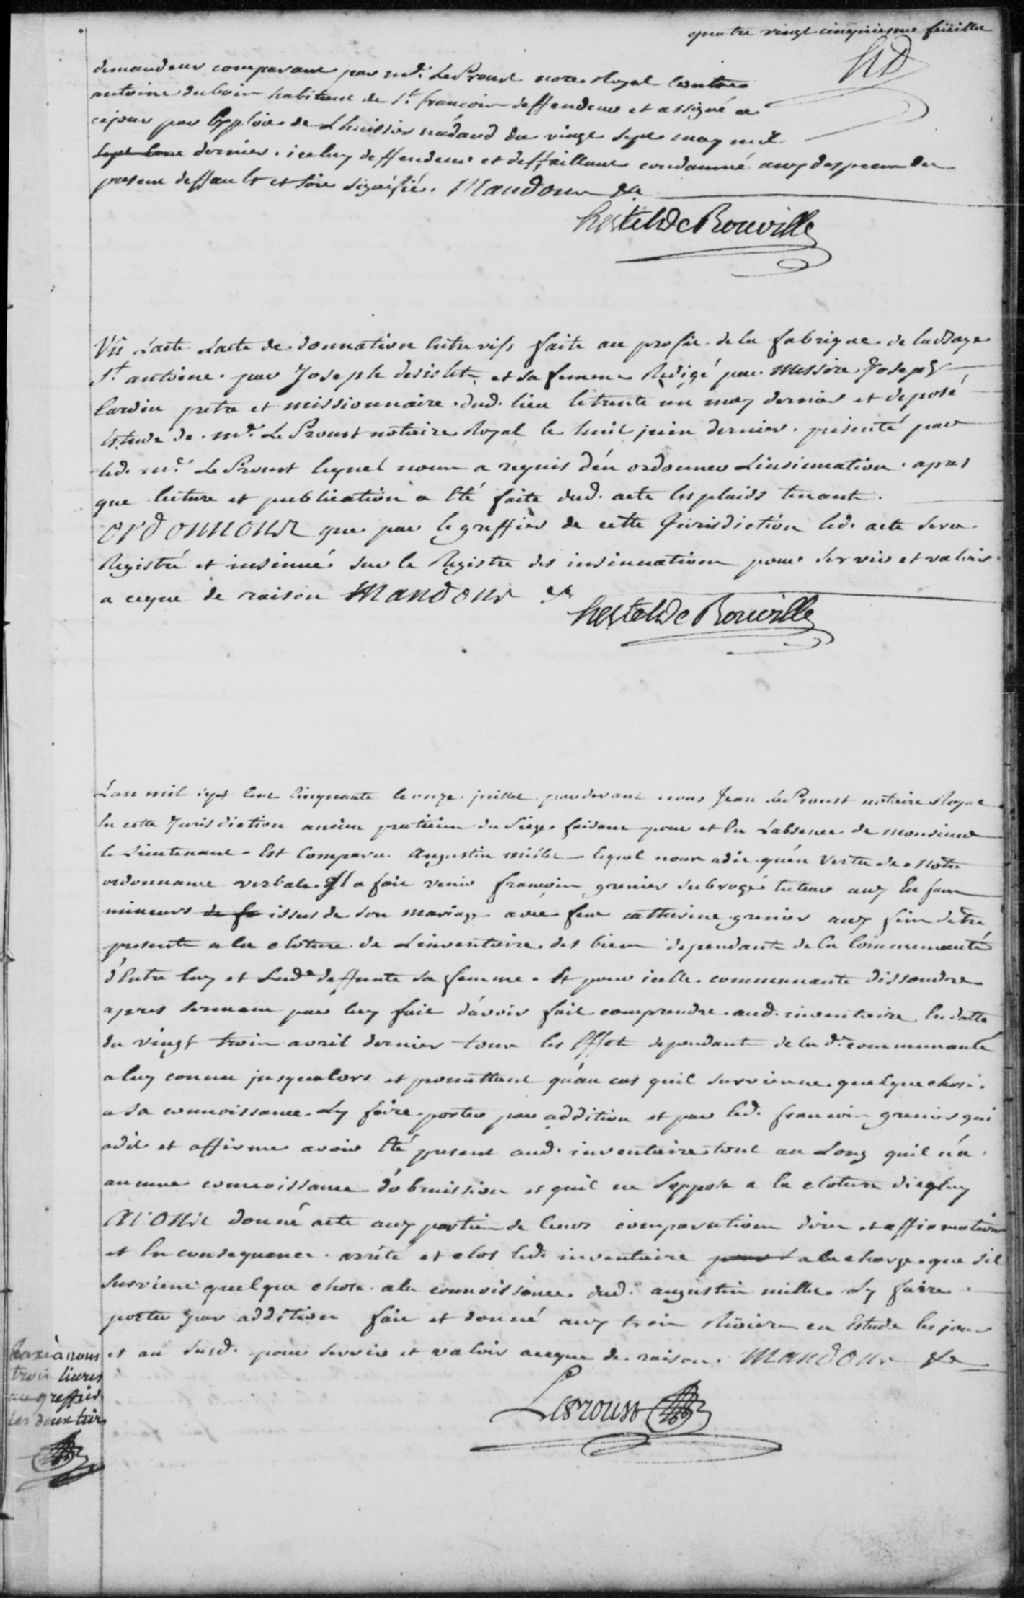 quatre vingt cinquieme feüille
demandeur comparant par me. LeProust notre. Royal Contre
antoine duboin habitant de St. francoin deffendeur et assigné a
cejour par Exploit de Lhuissier nadaud du vingt sept may mil
sept Cent dernier. iceluy deffendeur et deffaillant condamné aux despens du
present deffault et soit Signifié. Mandons &a
hertel De Rouville
Vû Lacte Lacte de donnation Entre vifs faite au profit de la fabrique de la Baye
St antoine. par Joseph desilets et sa femme Redigé par Messire Joseph
Cardin pretre et missionnaire dud. lieu le trente un may dernier et deposé
Estude de me. Le Proust notaire Royal le huit juin dernier. presenté par
led. me. Le Proust lequel nous a requis d'en ordonner Linsinuation. apres
que lecture et publication a Eté faite dud. acte les plaids tenant.
ordonnons que par le greffier de cette Jurisdiction led. acte sera
Registré et insinué sur le Registre des insinuations pour servir et valoir
a ceque de raison Mandons &a
hertel De Rouville
Lan mil sept Cent Cinquante le onze juillet pardevant nous Jean LeProust notaire Royal
En cette Jurisdiction ancien praticien du Siege faisant pour et En Labsence de Monsieur
le Lieutenant. Est Comparu Augustin millet lequel nous adit quen Vertu de notre
ordonnance verbale. Il a fait venir francoin grenier subrogé tuteur aux Enfans
mineurs de fe issus de son mariage avec feue catherine grenier aux fins detre
present a la cloture de Linventaire des biens dependants de la Communauté
d'Entre luy et Lade. deffunte sa femme. Et pour icelle communauté dissoudre
apres serment par luy fait d'avoir fait comprendre aud. inventaire En datte
du vingt trois avril dernier tous les Effets dependant de lad. communauté
a luy connu jusqualors et promettant qu'au cas quil survienne quelque chose
a sa connoissance. Ly faire porter par addition et par led. francoin grenier qui
adit et affirmé avoir Eté present aud. inventaire tout au Long quil n'a
aucune connoissance d'obmission et quil ne Soppose a la cloture d'iceluy
donné acte aux parties de leurs comparutions dire et affirmation
et En consequence. arrété et clos led. inventaire pour a la charge que sil
survient quelque chose ala connoissance dud. augustin millet Ly faire
porter par addition fait et donné aux trois Rivieres en Estude les jour
et an susd. pour servir et valoir aceque de raison. Mandons &a
LeProust
taxé à nous
trois livres
au greffier
les deux tiers